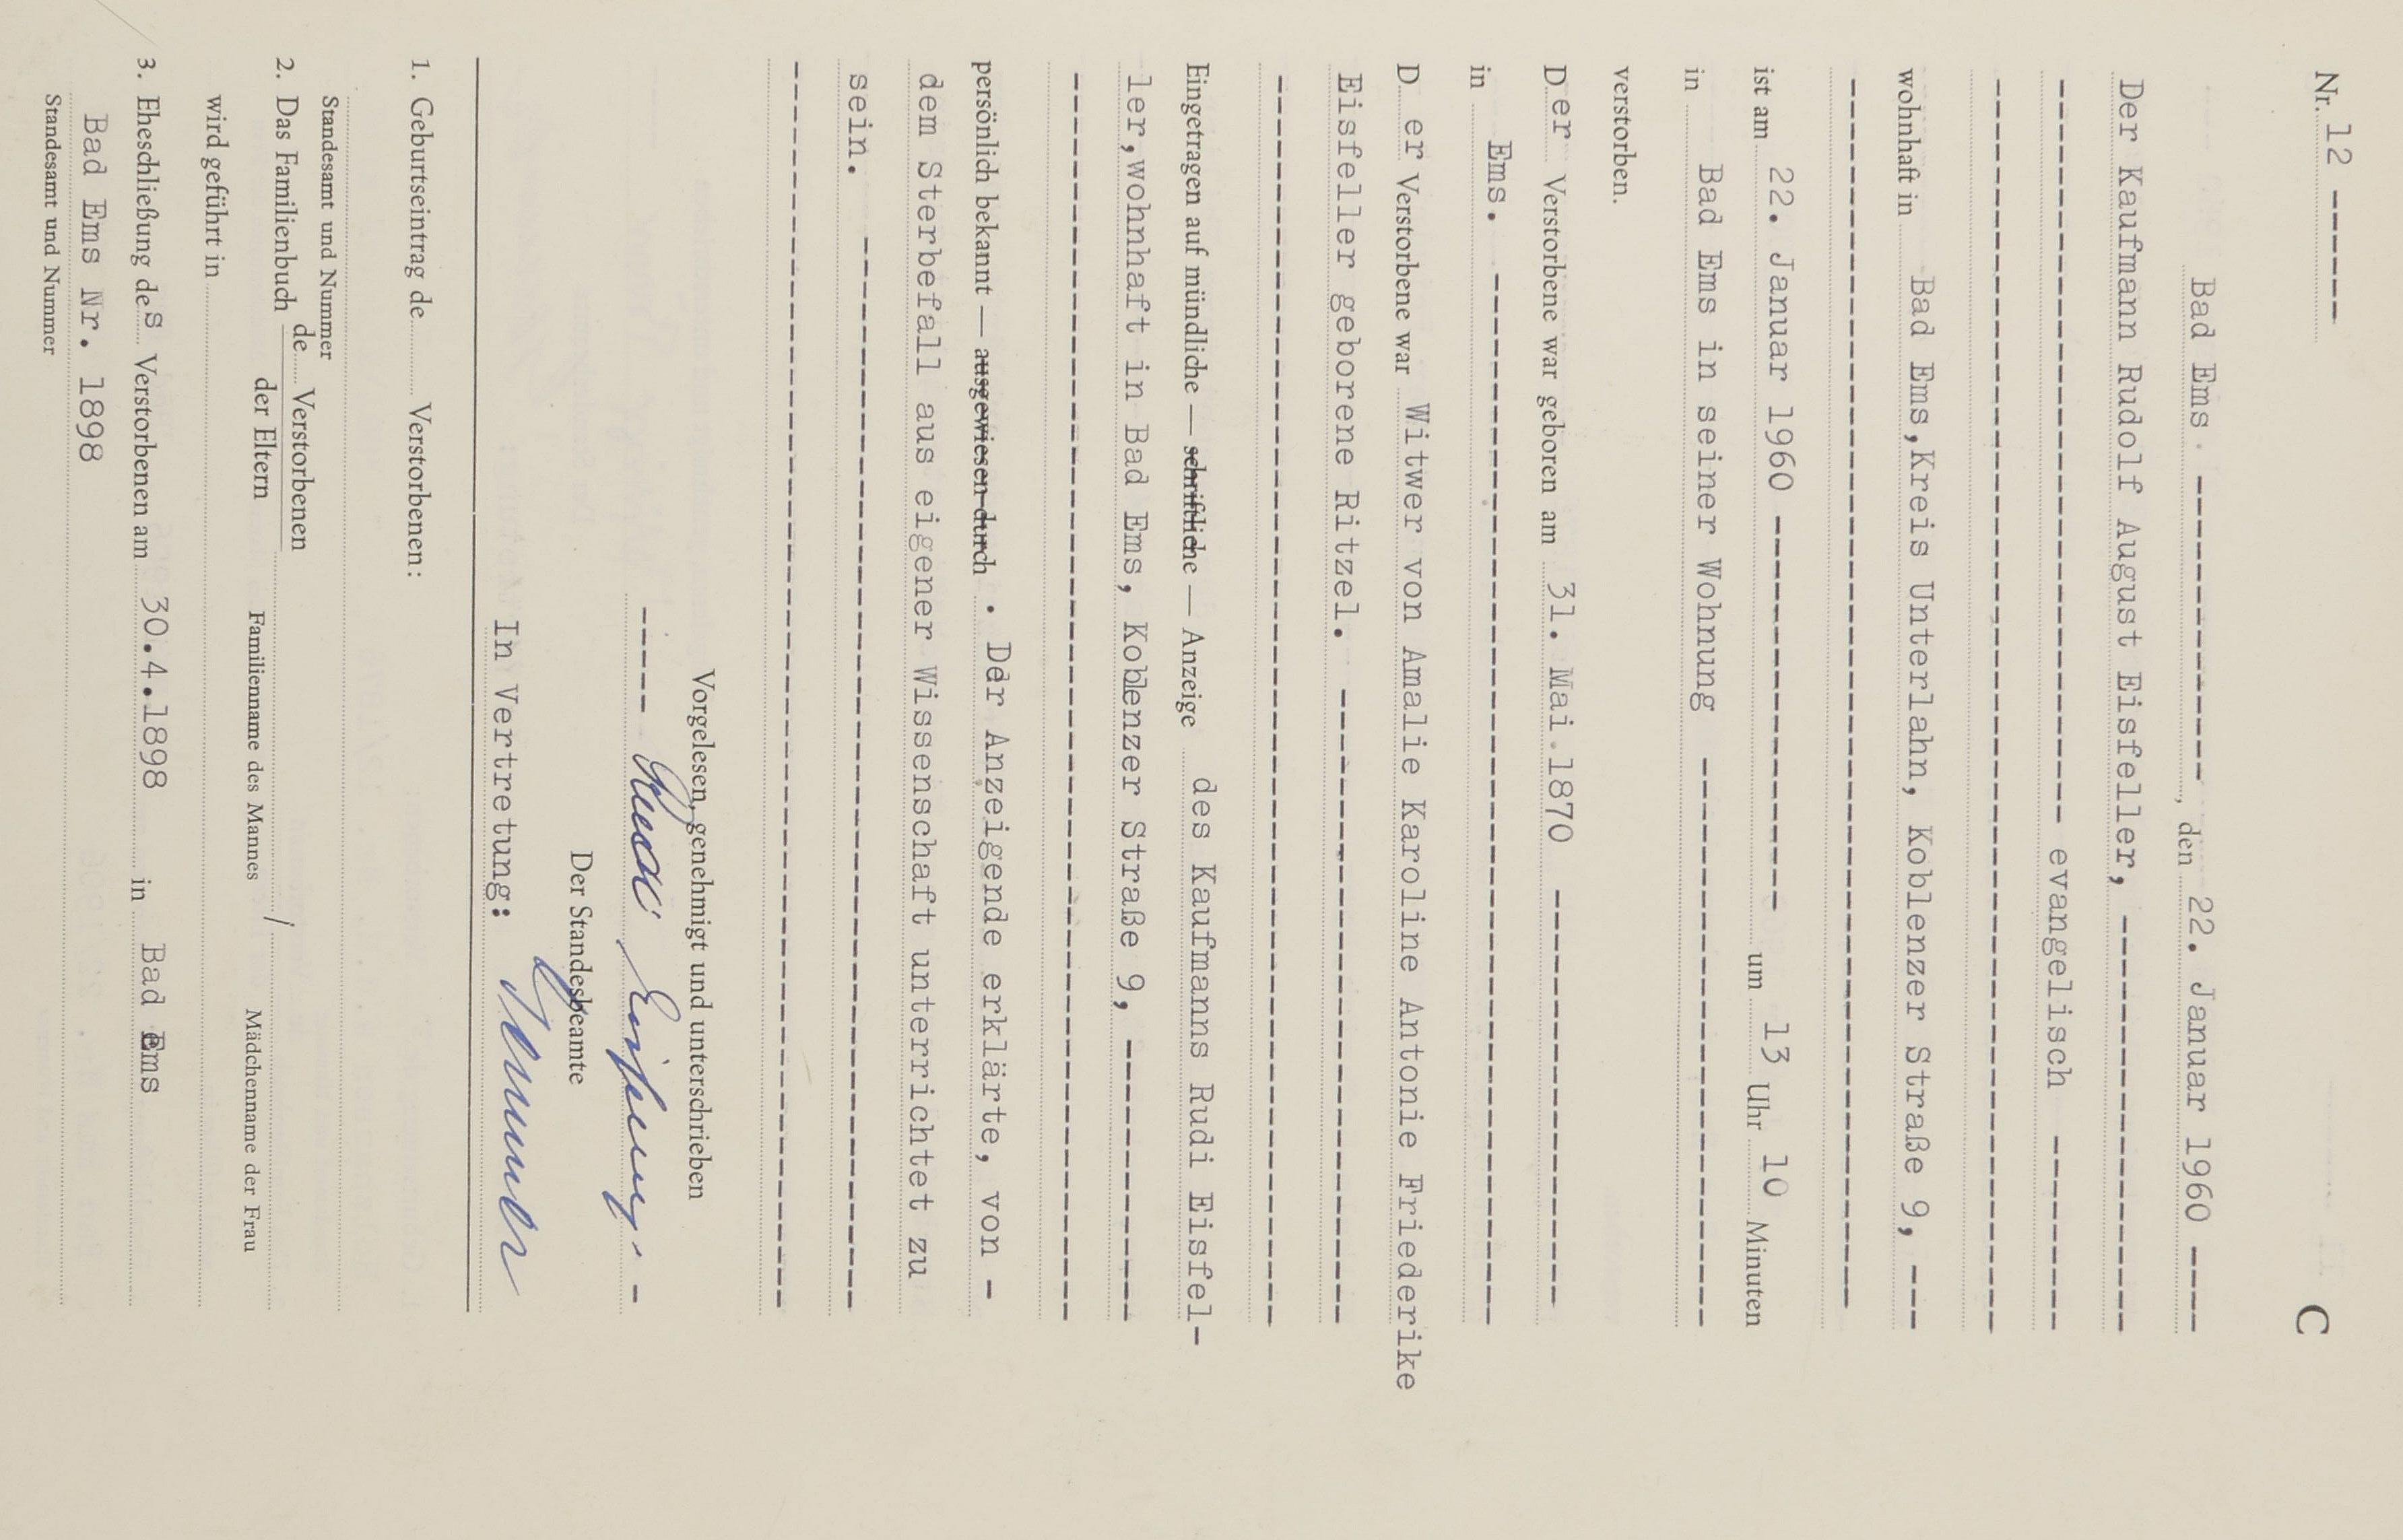 Nr. 12 ------ C
Bad Ems ------------, den 22. Januar 1960 ----
Der Kaufmann Rudolf August Eisfeller, -----------------
------------------------------ evangelisch --------
--------------------------------------------------
wohnhaft in Bad Ems,Kreis Unterlahn, Koblenzer Straße 9, ---
--------------------------------------------------
ist am 22. Januar 1960 ---------------- um 13 Uhr 10 Minuten
in Bad Ems in seiner Wohnung -----------------------
verstorben.
Der Verstorbene war geboren am 31. Mai 1870 -----------------
in Ems. ------------------------------------------
D er Verstorbene war Witwer von Amalie Karoline Antonie Friederike
Eisfeller geborene Ritzel. --------------------------
--------------------------------------------------
Eingetragen auf mündliche — schriftliche — Anzeige des Kaufmanns Rudi Eisfel-
ler,wohnhaft in Bad Ems, Koblenzer Straße 9, -----------
--------------------------------------------------
persönlich bekannt — ausgewiesen durch . Der Anzeigende erklärte, von -
dem Sterbefall aus eigener Wissenschaft unterrichtet zu
sein. --------------------------------------------
--------------------------------------------------
Vorgelesen, genehmigt und unterschrieben
----- Rudi Eisfeller -
Der Standesbeamte
In Vertretung:
1. Geburtseintrag de Verstorbenen:
Standesamt und Nummer
2. Das Familienbuch de Verstorbenen
der Eltern
Familienname des Mannes / Mädchenname der Frau
wird geführt in
3. Eheschließung des Verstorbenen am 30.4.1898 in Bad Ems
Bad Ems Nr. 1898
Standesamt und Nummer